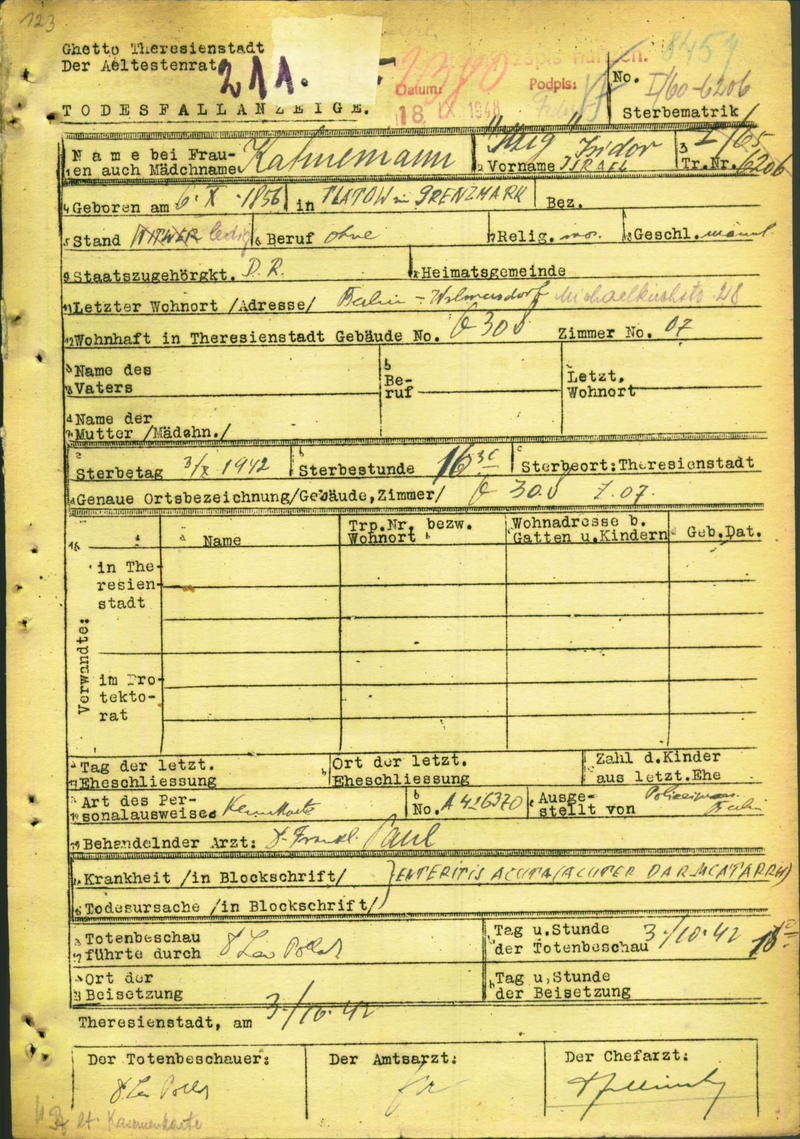 123
Ghetto Theresienstadt
Der Aeltestenrat
211.
2390
8459
Datum: Podpis:
18. IX. 1948
No. I/60-6206
Sterbematrik/
TODESFALLANZEIGE.
Name bei Frau-
en auch Mädchname Kahnemann
Vorname Isidor ISRAEL
Tr.Nr. I/65 6206
Geboren am 6. X. 1856 in FLATOW in GRENZMARK Bez.
Stand WITWER ledig Beruf ohne Relig. mos. Geschl. männl.
Staatszugehörgkt. D.R. Heimatsgemeinde
Letzter Wohnort /Adresse/ Berlin - Wilmersdorf 28
Wohnhaft in Theresienstadt Gebäude No. Zimmer No. 07
Name des
Vaters
Be-
ruf
Letzt.
Wohnort
Name der
Mutter /Mädchn./
Sterbetag 3/X 1942 Sterbestunde 16 30 Sterbeort: Theresienstadt
Genaue Ortsbezeichnung/Gebäude, Zimmer/ Z.07.
Name
Trp.Nr. bezw.
Wohnort
Wohnadresse b.
Gatten u.Kindern
Geb.Dat.
Verwandte:
in The-
resien-
stadt
im Pro-
tekto-
rat
Tag der letzt.
Eheschliessung
Ort der letzt.
Eheschliessung
Zahl d.Kinder
aus letzt.Ehe
Art des Per-
sonalausweises Kennkarte
No. A 426370
Ausge-
stellt von Berlin
Behandelnder Arzt: Dr. Paul
Krankheit /in Blockschrift/ ENTERITIS ACUTA (ACUTER DARMCATARRH)
Todesursache /in Blockschrift/
Totenbeschau
führte durch
Tag u.Stunde
der Totenbeschau 3./10.42
Ort der
Beisetzung
Tag u.Stunde
der Beisetzung
Theresienstadt, am 3./10.42
Der Totenbeschauer: Der Amtsarzt: Der Chefarzt:
lt. Kasernenkarte